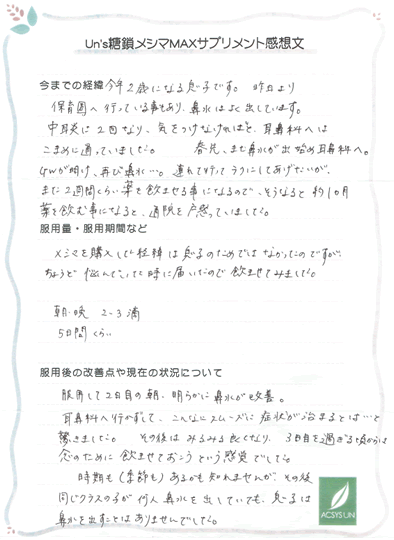 Un's糖鎖メシマMAXサプリメント感想文
今までの経緯 今年2歳になる息子です。昨日より
保育園へ行っている事もあり、鼻水はよく出しています。
中耳炎は2回なり、気をつけなければと、耳鼻科へは
こまめに通っていました。 春先、また鼻水が出始め耳鼻科へ。
GWが明け、再び鼻水…。連れて行ってラクにしてあげたいが、
また2週間くらい薬を飲ませる事になるので、そうなると約1カ月
薬を飲む事になると、通院を戸惑っていました。
服用量・服用期間など
メシマを購入した経緯は息子のためではなかったのですが
ちょうど悩んでいた時に届いたので飲ませてみました。
朝・晩 2~3滴
5日間くらい
服用後の改善点や現在の状況について
服用して2日目の朝、明らかに鼻水が改善。
耳鼻科へ行かずして、こんなにスムーズに症状が治まるとは…と
驚きました。 その後はみるみる良くなり、3日目を過ぎる頃からは
念のために飲ませておこうという感覚でした。
時期も(季節も)あるかも知れませんが、その後
同じクラスの子が何人鼻水を出していても、息子は
鼻水を出すことはありませんでした。
ACSYS UN